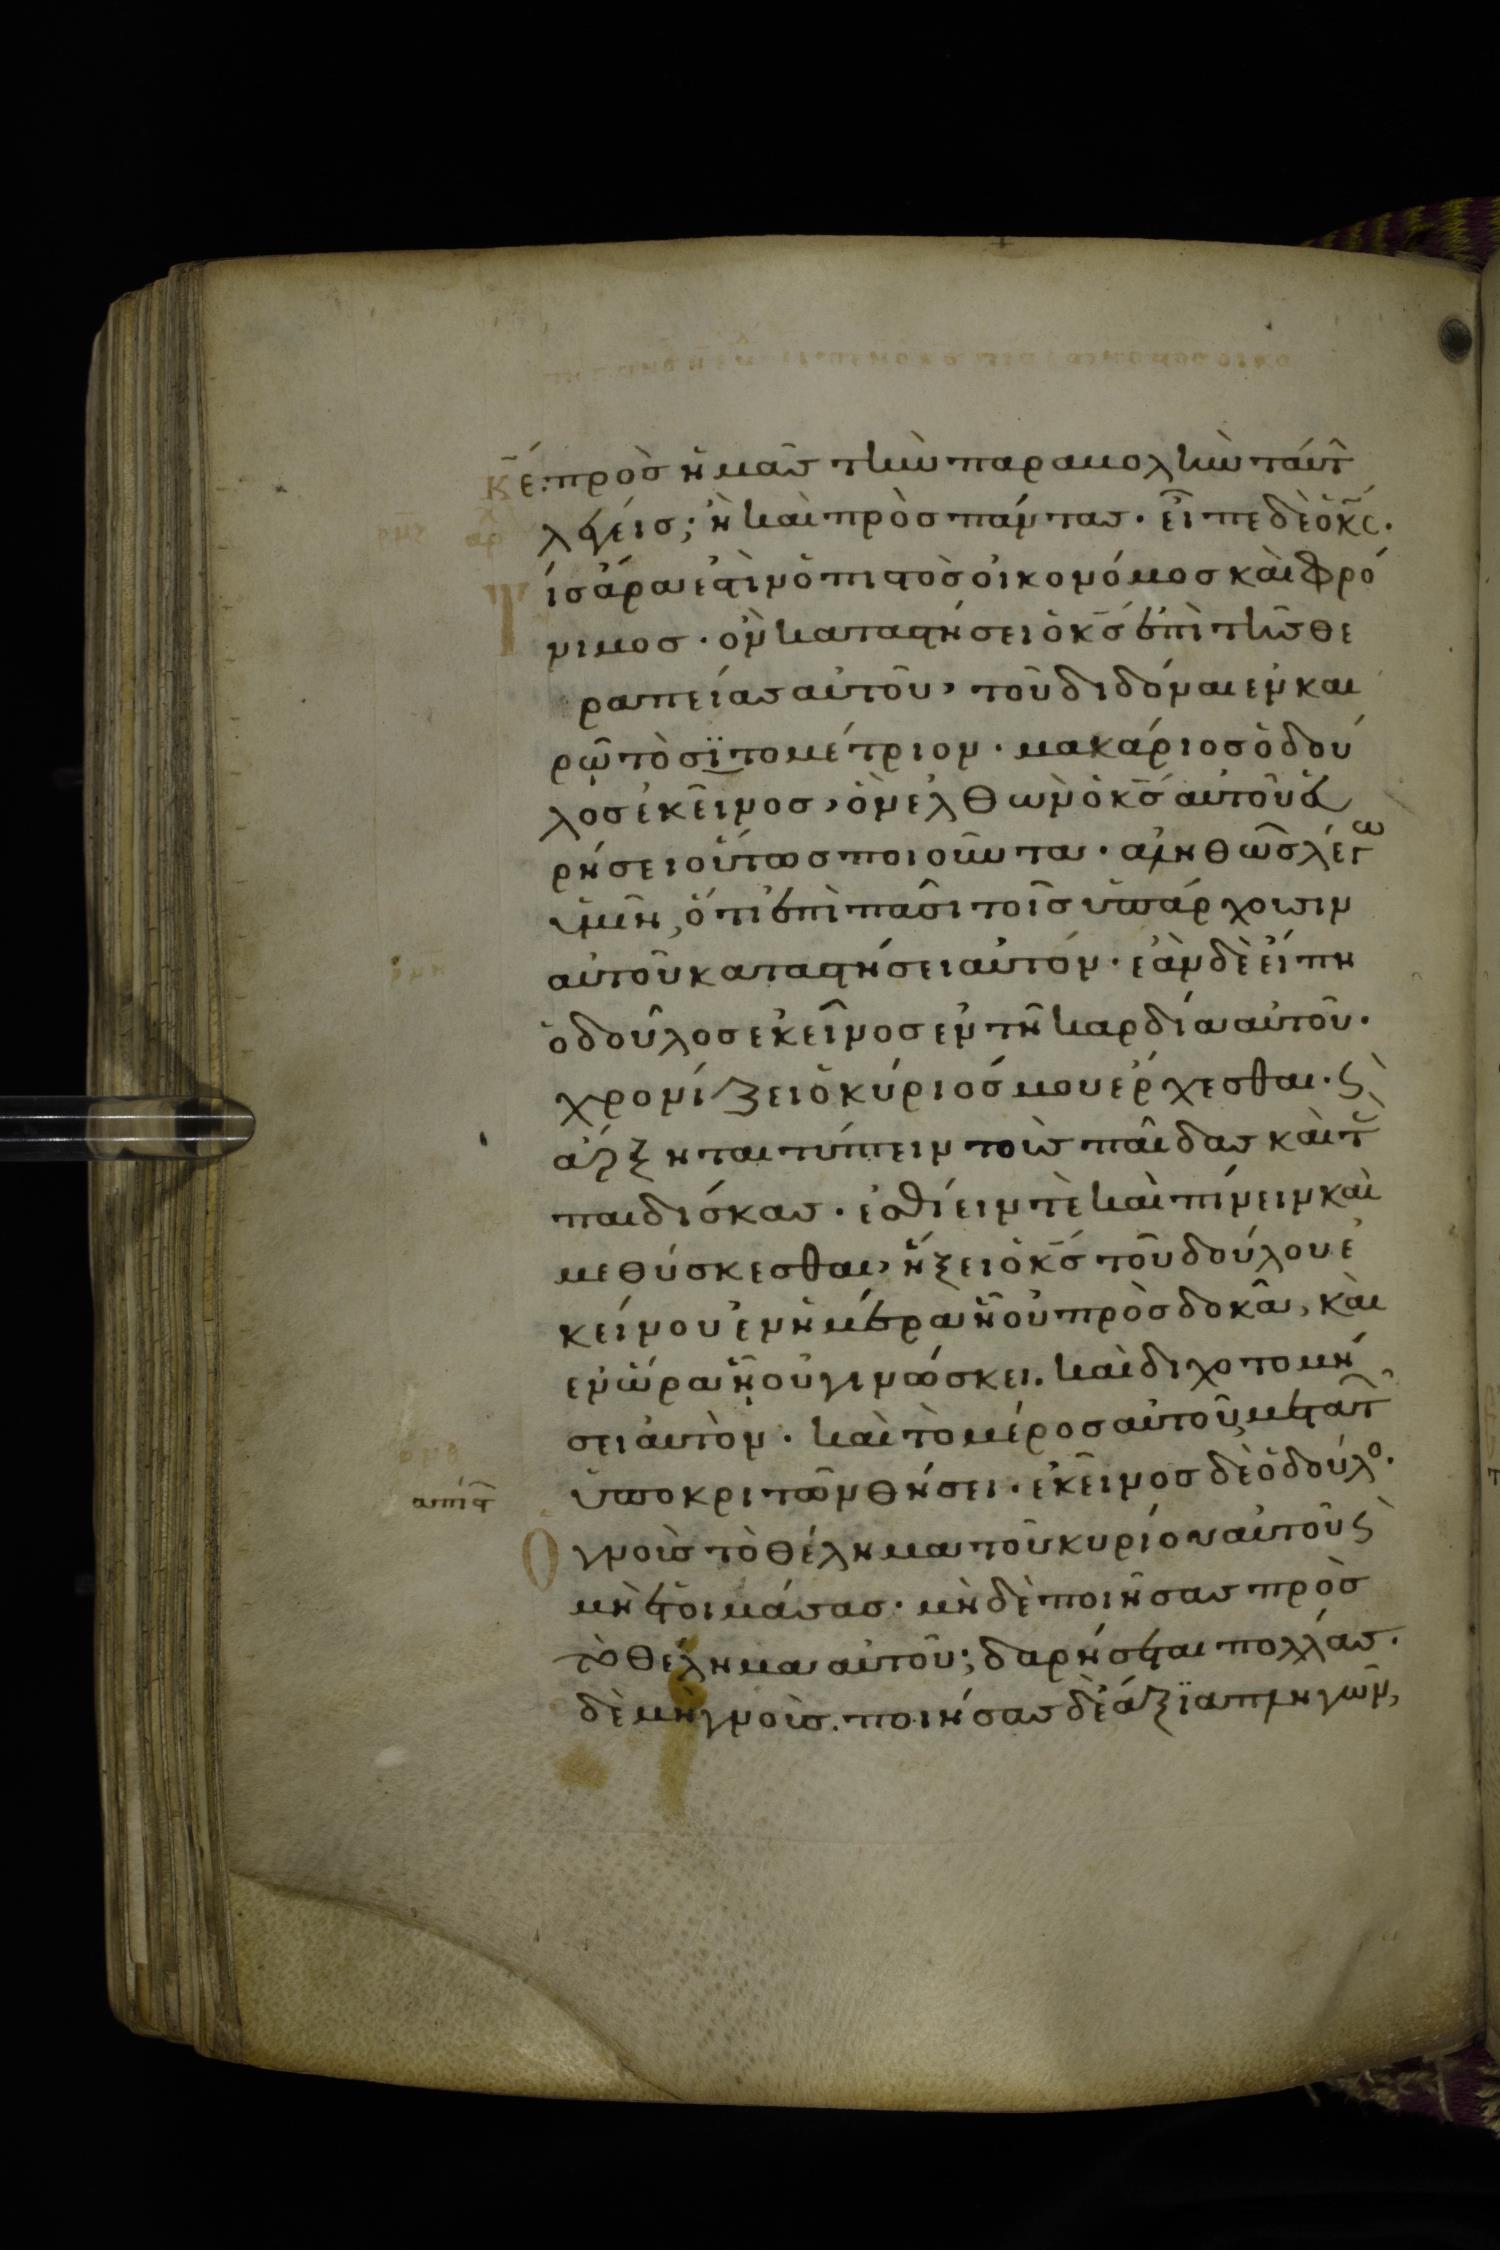 κ̅έ: πρὸς ἡμᾶς τὴν παραβολὴν ταύτ̑
λέγεις; ἢ καὶ πρὸς πάντας · εἶπε δὲ ὁ κ̅ς́ ·
Τίς ἄρα ἐστὶν ὁ πιστὸς οἰκονόμος καὶ φρό
νιμος · ὃν καταστήσει ὁ κ̅ς́ ἐπὶ τῆς θε
ραπείας αὐτοῦ, τοῦ διδόναι ἐν και
ρῷ τὸ σϊτομέτριον · μακάριος ὁ δού
λος ἐκεῖνος, ὃν ἐλθὼν ὁ κ̅ς́ αὐτοῦ εὑ
ρήσει οὕτως ποιοῦντα · ἀληθῶς λέγω
ὑμῖν, ὅτι ἐπὶ πᾶσι τοῖς ὑπάρχουσιν
αὐτοῦ καταστήσει αὐτόν · ἐὰν δὲ εἴπη
ὁ δοῦλος ἐκεῖνος ἐν τῆ καρδία αὐτοῦ ·
χρονίζει ὁ κύριός μου ἔρχεσθαι · ϛ̀
ἄρξηται τύπτειν τοὺς παῖδας καὶ τ̀
παιδίσκας · ἐσθίειν τὲ καὶ πίνειν καὶ
μεθύσκεσθαι, ἥξει ὁ κ̅ς́ τοῦ δούλου ἐ
κείνου ἐν ἡμέρα ἧ οὐ προσδοκᾶ, καὶ
ἐν ὥρα ἧ οὐ γινώσκει. καὶ διχοτομή
σει αὐτὸν · καὶ τὸ μέρος αὐτοῦ μετὰ τ̑
ὑποκριτῶν θήσει · ἐκεῖνος δὲ ὁ δούλο ·
απίστ̑
Ὁ γνοὺς τὸ θέλημα τοῦ κυρίου αὐτοῦ ϛ̀
μὴ ἑτοιμάσας · μὴ δὲ ποιῆσας πρὸς
τὸ θέλημα αὐτοῦ; δαρήσεται πολλάς ·
δὲ μὴ γνοὺς. ποιήσας δὲ ἄξϊα πληγῶν,